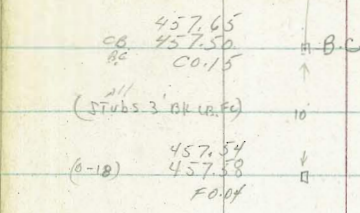 457.65
C.B. 457.50 B.C
B.C C0.15
(Stubs 3' BK CB.FC) 10'
457.54
(0-18) 457.58
F0.04